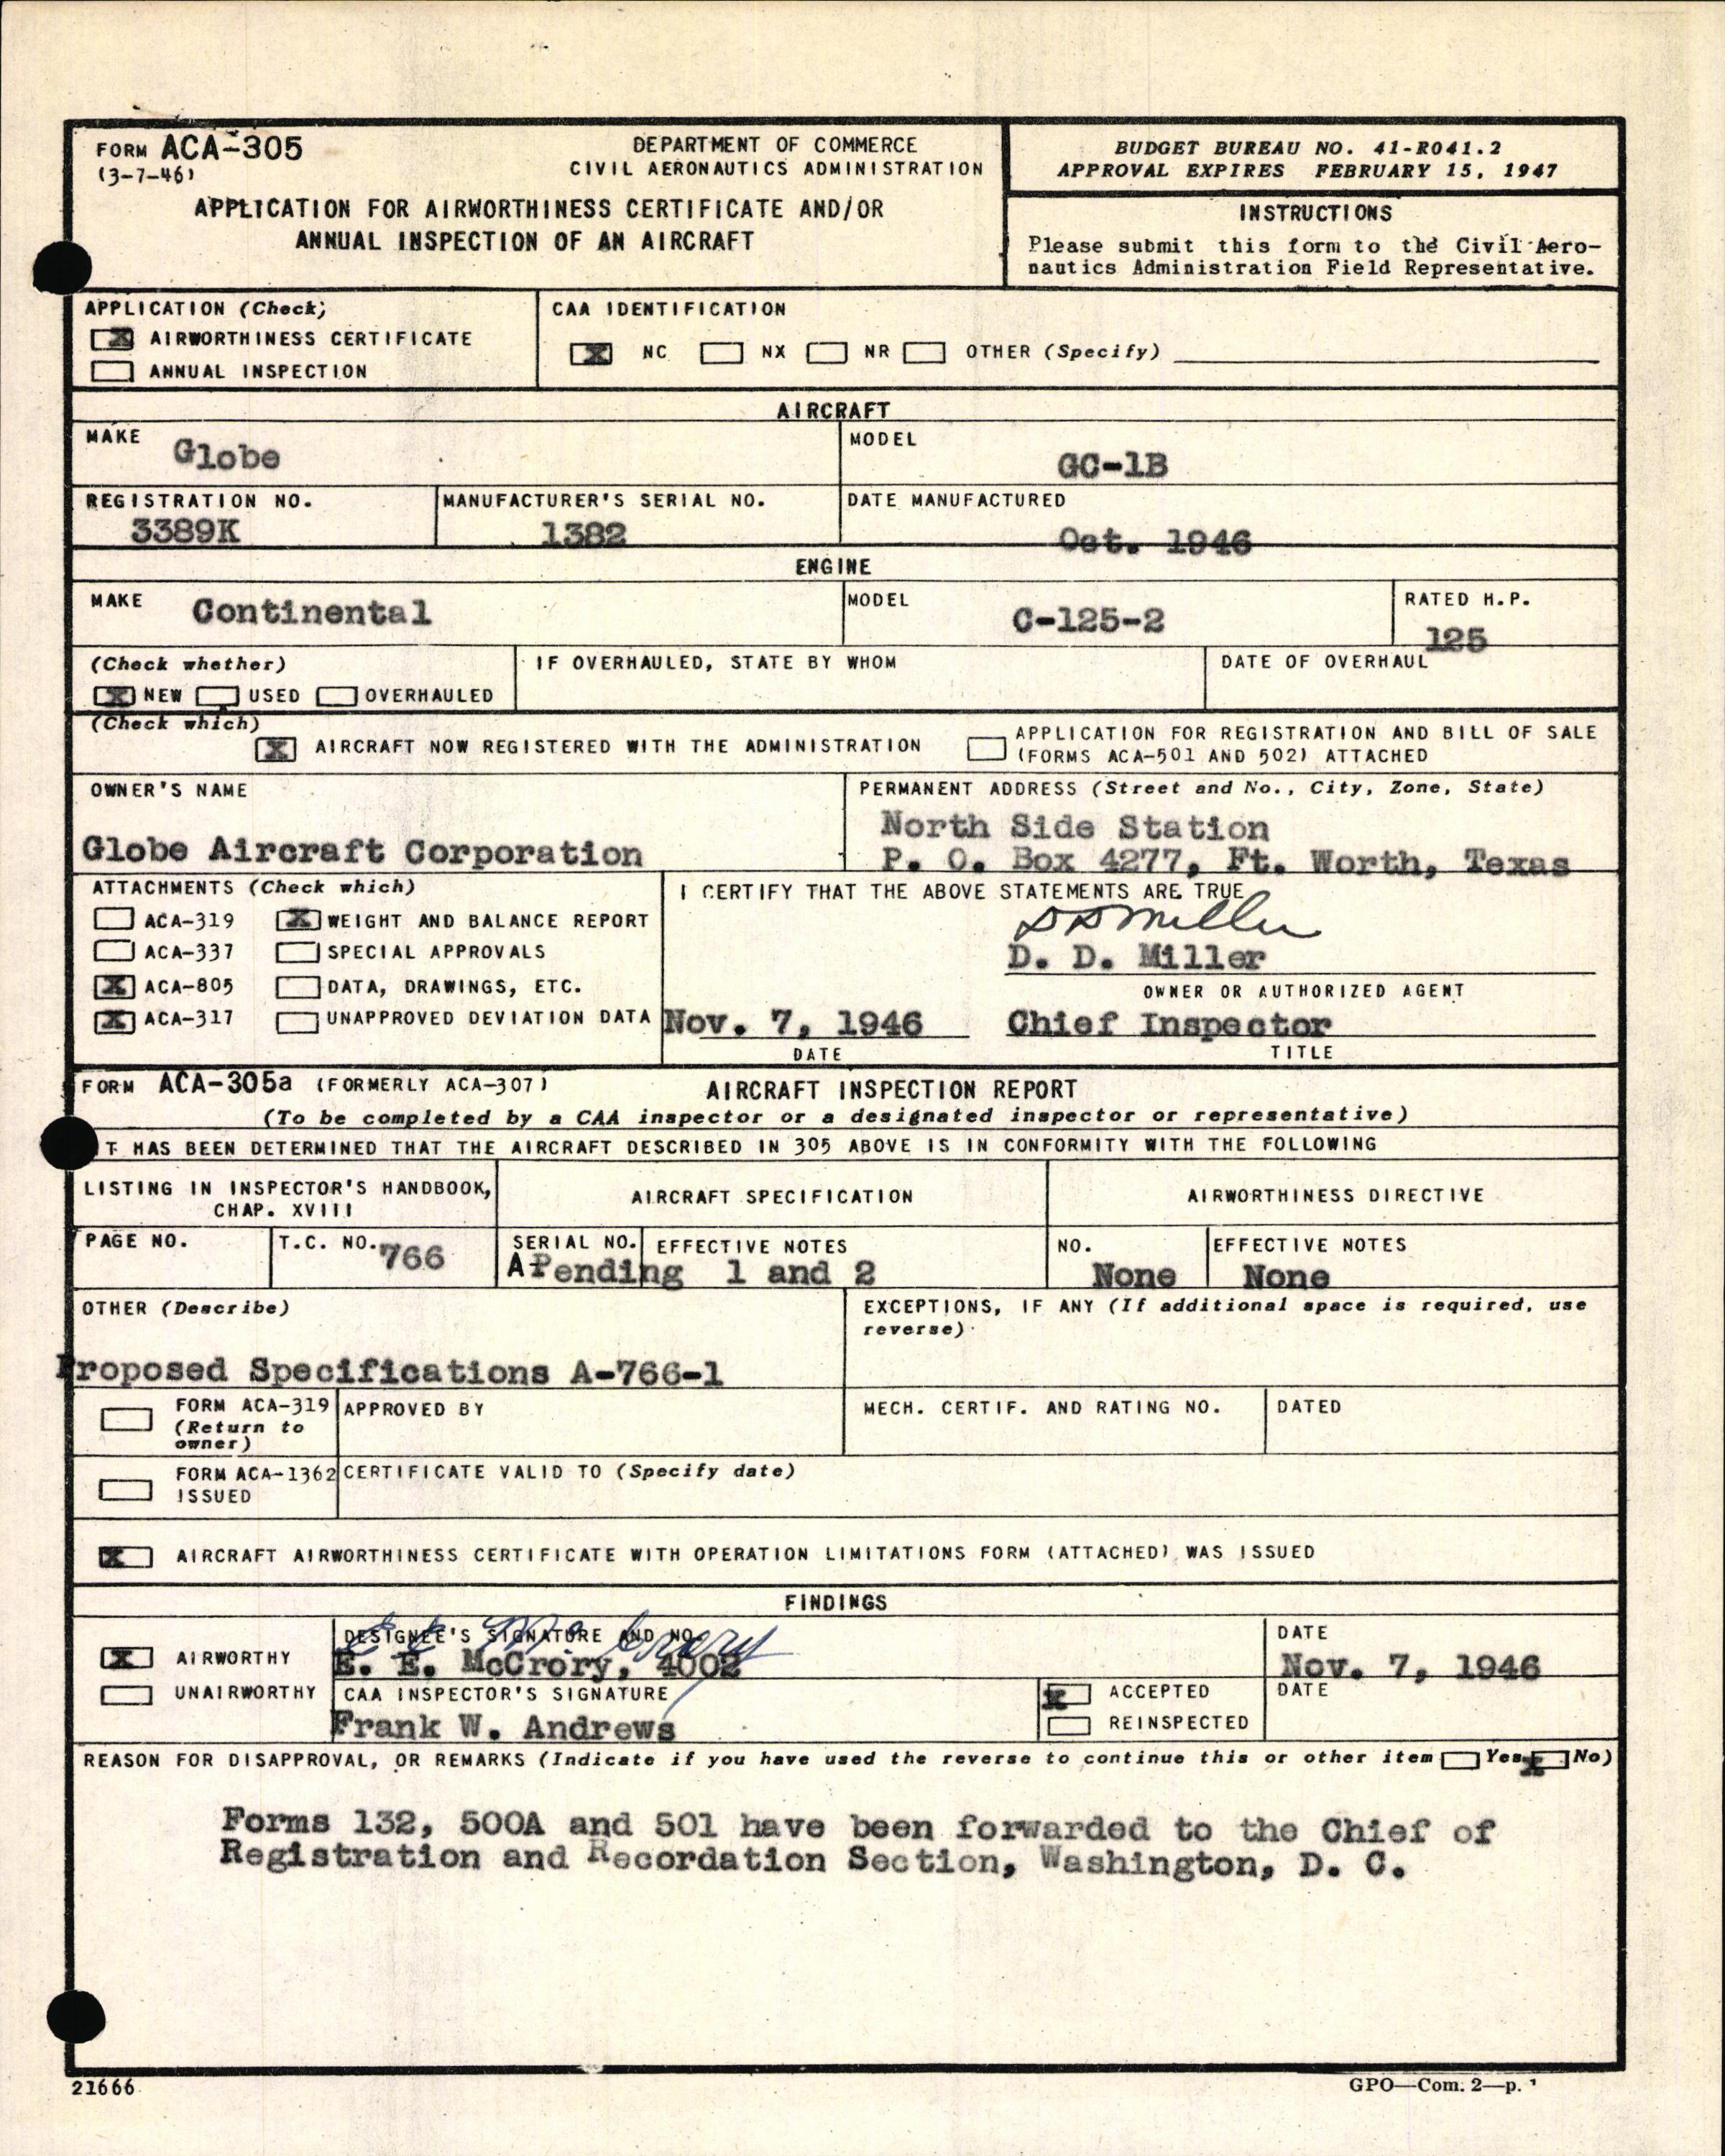 FORM ACA-305
(3-7-46)
DEPARTMENT OF COMMERCE
CIVIL AERONAUTICS ADMINISTRATION
APPLICATION FOR AIRWORTHINESS CERTIFICATE AND/OR
ANNUAL INSPECTION OF AN AIRCRAFT
BUDGET BUREAU NO. 41-R041.2
APPROVAL EXPIRES FEBRUARY 15, 1947
INSTRUCTIONS
Please submit this form to the Civil Aero-
nautics Administration Field Representative.
APPLICATION (Check)
X AIRWORTHINESS CERTIFICATE
ANNUAL INSPECTION
CAA IDENTIFICATION
X NC NX NR OTHER (Specify)
AIRCRAFT
MAKE
Globe
MODEL
GC-1B
REGISTRATION NO.
3389K
MANUFACTURER'S SERIAL NO.
1382
DATE MANUFACTURED
Oct. 1946
ENGINE
MAKE
Continental
MODEL
C-125-2
RATED H.P.
125
(Check whether)
X NEW USED OVERHAULED
IF OVERHAULED, STATE BY WHOM
DATE OF OVERHAUL
(Check which)
X AIRCRAFT NOW REGISTERED WITH THE ADMINISTRATION
APPLICATION FOR REGISTRATION AND BILL OF SALE
(FORMS ACA-501 AND 502) ATTACHED
OWNER'S NAME
Globe Aircraft Corporation
PERMANENT ADDRESS (Street and No., City, Zone, State)
North Side Station
P. O. Box 4277, Ft. Worth, Texas
ATTACHMENTS (Check which)
ACA-319 X WEIGHT AND BALANCE REPORT
ACA-337 SPECIAL APPROVALS
X ACA-805 DATA, DRAWINGS, ETC.
X ACA-317 UNAPPROVED DEVIATION DATA
I CERTIFY THAT THE ABOVE STATEMENTS ARE TRUE
D D Miller
D. D. Miller
OWNER OR AUTHORIZED AGENT
Nov. 7, 1946 Chief Inspector
DATE TITLE
FORM ACA-305a (FORMERLY ACA-307) AIRCRAFT INSPECTION REPORT
(To be completed by a CAA inspector or a designated inspector or representative)
T HAS BEEN DETERMINED THAT THE AIRCRAFT DESCRIBED IN 305 ABOVE IS IN CONFORMITY WITH THE FOLLOWING
LISTING IN INSPECTOR'S HANDBOOK,
CHAP. XVIII
AIRCRAFT SPECIFICATION
AIRWORTHINESS DIRECTIVE
PAGE NO.
T.C. NO. 766
SERIAL NO. EFFECTIVE NOTES
APending 1 and 2
NO.
None
EFFECTIVE NOTES
None
OTHER (Describe)
Proposed Specifications A-766-1
EXCEPTIONS, IF ANY (If additional space is required, use
reverse)
FORM ACA-319
(Return to
owner)
APPROVED BY
MECH. CERTIF. AND RATING NO.
DATED
FORM ACA-1362
ISSUED
CERTIFICATE VALID TO (Specify date)
X AIRCRAFT AIRWORTHINESS CERTIFICATE WITH OPERATION LIMITATIONS FORM (ATTACHED) WAS ISSUED
FINDINGS
X AIRWORTHY
UNAIRWORTHY
DESIGNEE'S SIGNATURE AND NO.
E E McCrory
E. E. McCrory, 4002
DATE
Nov. 7, 1946
CAA INSPECTOR'S SIGNATURE
Frank W. Andrews
X ACCEPTED
REINSPECTED
DATE
REASON FOR DISAPPROVAL, OR REMARKS (Indicate if you have used the reverse to continue this or other item Yes X No)
Forms 132, 500A and 501 have been forwarded to the Chief of
Registration and Recordation Section, Washington, D. C.
21666
GPO—Com. 2—p.